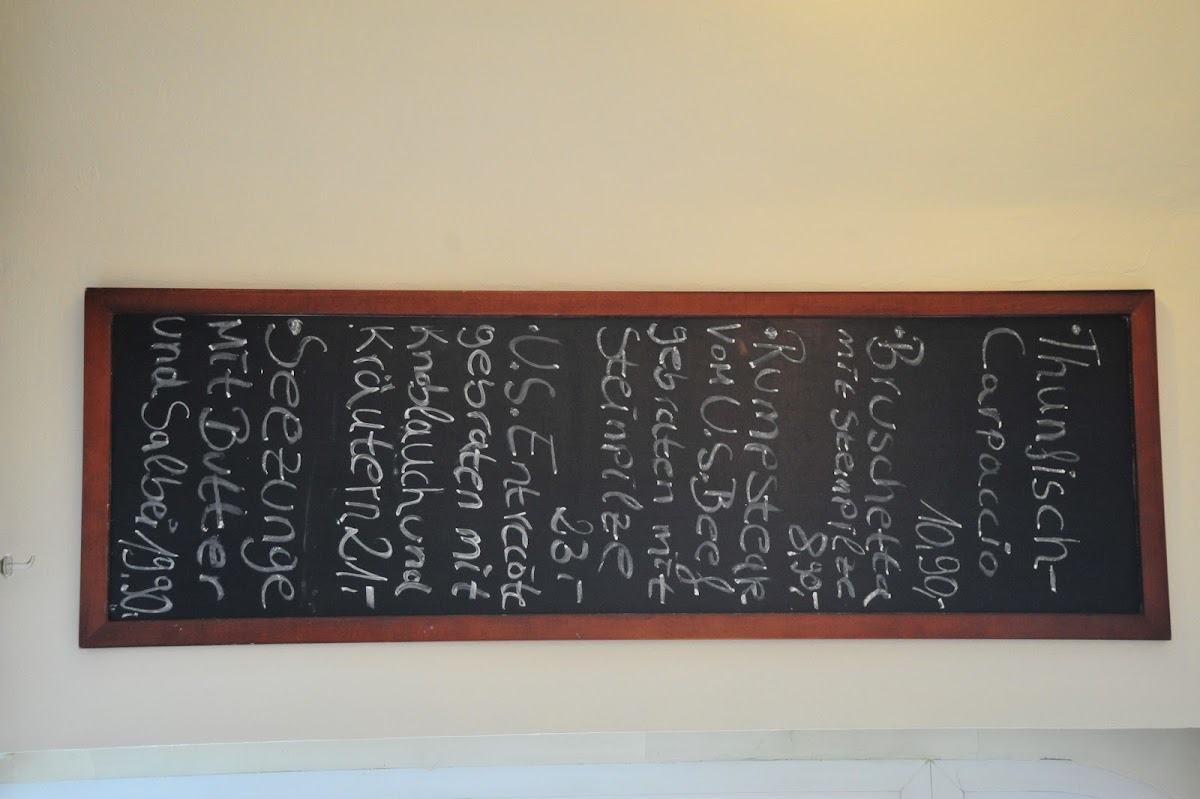 • Thunfisch-
Carpaccio
10,90,-
• Bruschetta
mit Steinpilze
8,90,-
• Rumpsteak
Vom U.S. Beef
gebraten mit
Steinpilze
23,-
• U.S. Entrecôte
gebraten mit
Knoblauch und
Kräutern 21,-
• Seezunge
Mit Butter
und Salbei 19,90,-